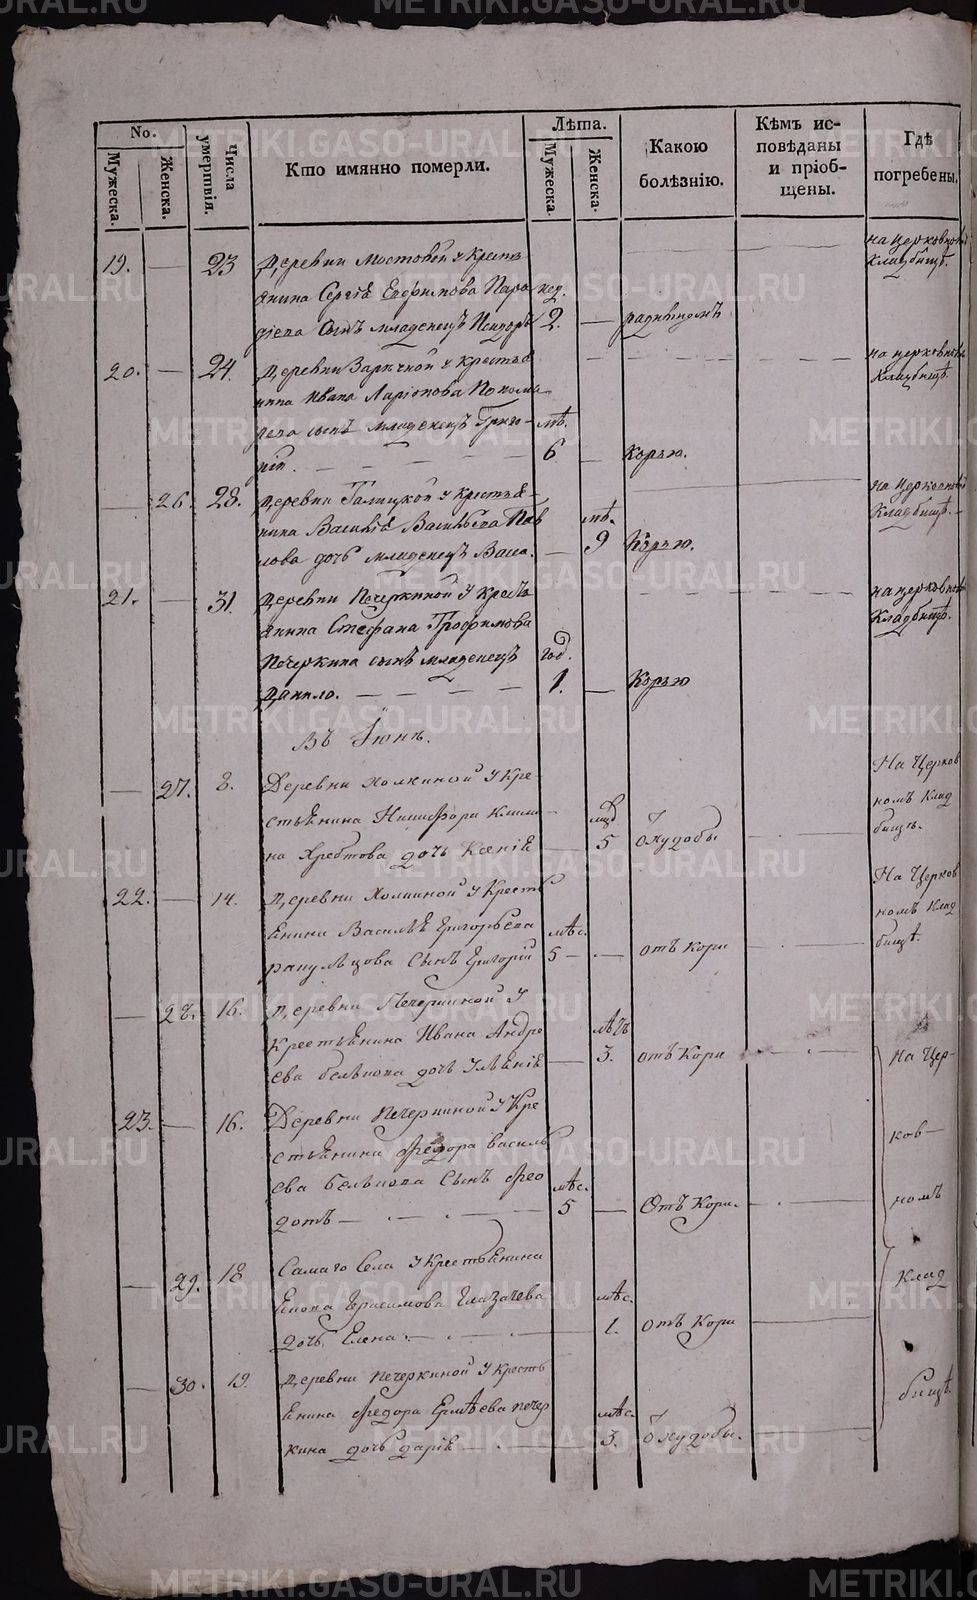 METRIKI.GASO-URAL.RU
No.
Мужеска.
Женска.
Числа умертвія.
Кто имянно померли.
Лѣта.
Мужеска.
Женска.
Какою болѣзнію.
Кѣмъ исповѣданы и пріобщены.
Гдѣ погребены.
19. — 23 Деревни Мостовой у крестьянина Сергѣя Ефимова сынъ младенецъ нед. 2. — родимцомъ
на церковномъ кладбищѣ.
20. — 24. Деревни Заречной у крестьянина Ивана Ларіонова Пономарева сынъ младенецъ Григорій. мѣ. 6 — Корью.
на церковномъ кладбищѣ.
— 26. 28. Деревни Галицкой у крестьянина Василія Васильева Павлова дочь младенецъ Васса. — мѣ. 9 Корью.
на церковномъ кладбищѣ.
21. — 31. Деревни Печеркиной у крестьянина Стефана Трофимова Печеркина сынъ младенецъ Данило. год. 1. — Корью
на церковномъ кладбищѣ.
Въ Іюнѣ.
— 27. 8. Деревни Холкиной у крестьянина Никифора Хребтова дочь Ксенія — 5 Отъ худобы
На Церковномъ Кладбищѣ.
22. — 14. Деревни Холкиной у крестьянина Василья Григорьева сынъ Григорій мѣс. 5 — отъ Кори
На Церковномъ Кладбищѣ.
— 28. 16. Деревни Печеркиной у Крестьянина Ивана Андреева Белькова дочь Ульянія — лѣтъ 3. отъ Кори
23. — 16. Деревни Печеркиной у Крестьянина Федора Васильева Белькова Сынъ Феодотъ — мѣс. 5 — Отъ Кори.
— 29. 18 Самаго Села у Крестьянина Герасимова Глазачева дочь Елена. — мѣс. 1. отъ Кори
— 30. 19. Деревни Печеркиной у Крестьянина Федора Ермѣева Печеркина дочь Дарія — мѣс. 3. Отъ худобы.
На Цер-
ков-
номъ
Клад
бищѣ.